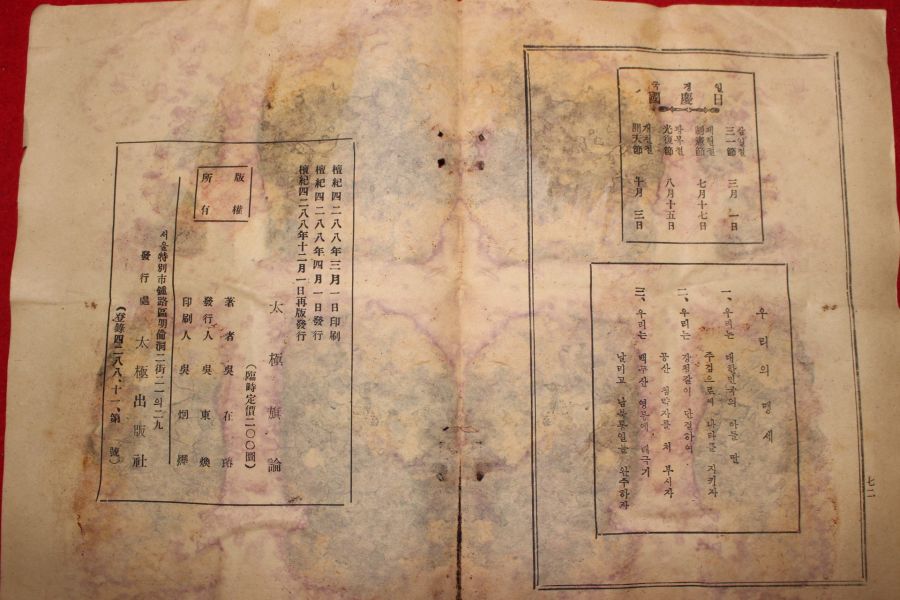 국경일
國慶日
삼일절
三一節 三月 一日
제헌절
制憲節 七月十七日
光復節 八月十五日
개천절
開天節 十月 三日
우리의 맹세
一、우리는 대한민국의 아들 딸
주검으로써 나라를 지키자
二、우리는 강철같이 단결하여
공산 침략자를 처 부시자
三、우리는 백두산 영봉에 태극기
날리고 남북통일을 완수하자
七二
檀紀四二八八年三月一日印刷
檀紀四二八八年四月一日發行
檀紀四二八八年十二月一日再版發行
太極旗論
(臨時定價二〇〇圜)
著者 吳在
發行人 吳東煥
印刷人 吳
版權
所有
서울特別市鍾路區明倫洞二街二一의二九
發行處 太極出版社
(登錄四二八八、十一、第 號)